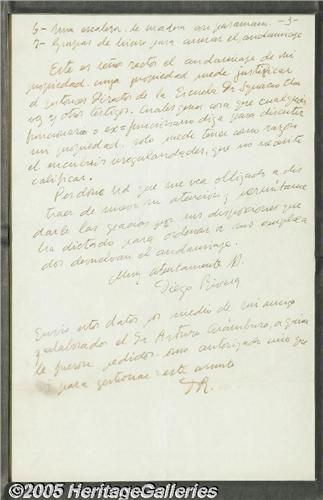 6- Una escalera de madera con pasamano. -3-
7- Grapas de fierro para armar el andamiaje
Este es señor rector el andamiaje de mi
propiedad. cuya propiedad puede justificar
el entonces Director de la Escuela Dn Ignacio
y otros testigos. Cualesquiera cosa que cualquier
funcionario o ex=funcionario diga para discutir
mi propiedad. solo puede tener como razón
el encubrir irregularidades, que no necesito
calificar.
Perdone Ud que me vea obligado a dis
traer de nuevo su atención y permítame
darle las gracias por sus disposiciones que
ha dictado para ordenar a sus emplea
dos devuelvan el andamiaje.
Muy atentamente
Diego Rivera
Envio estos datos por medio de mi amigo
y colaborador el Sr Arturo a quien
le fueron pedidos. autorizado
para gestionar este asunto
DR.
©2005 HeritageGalleries